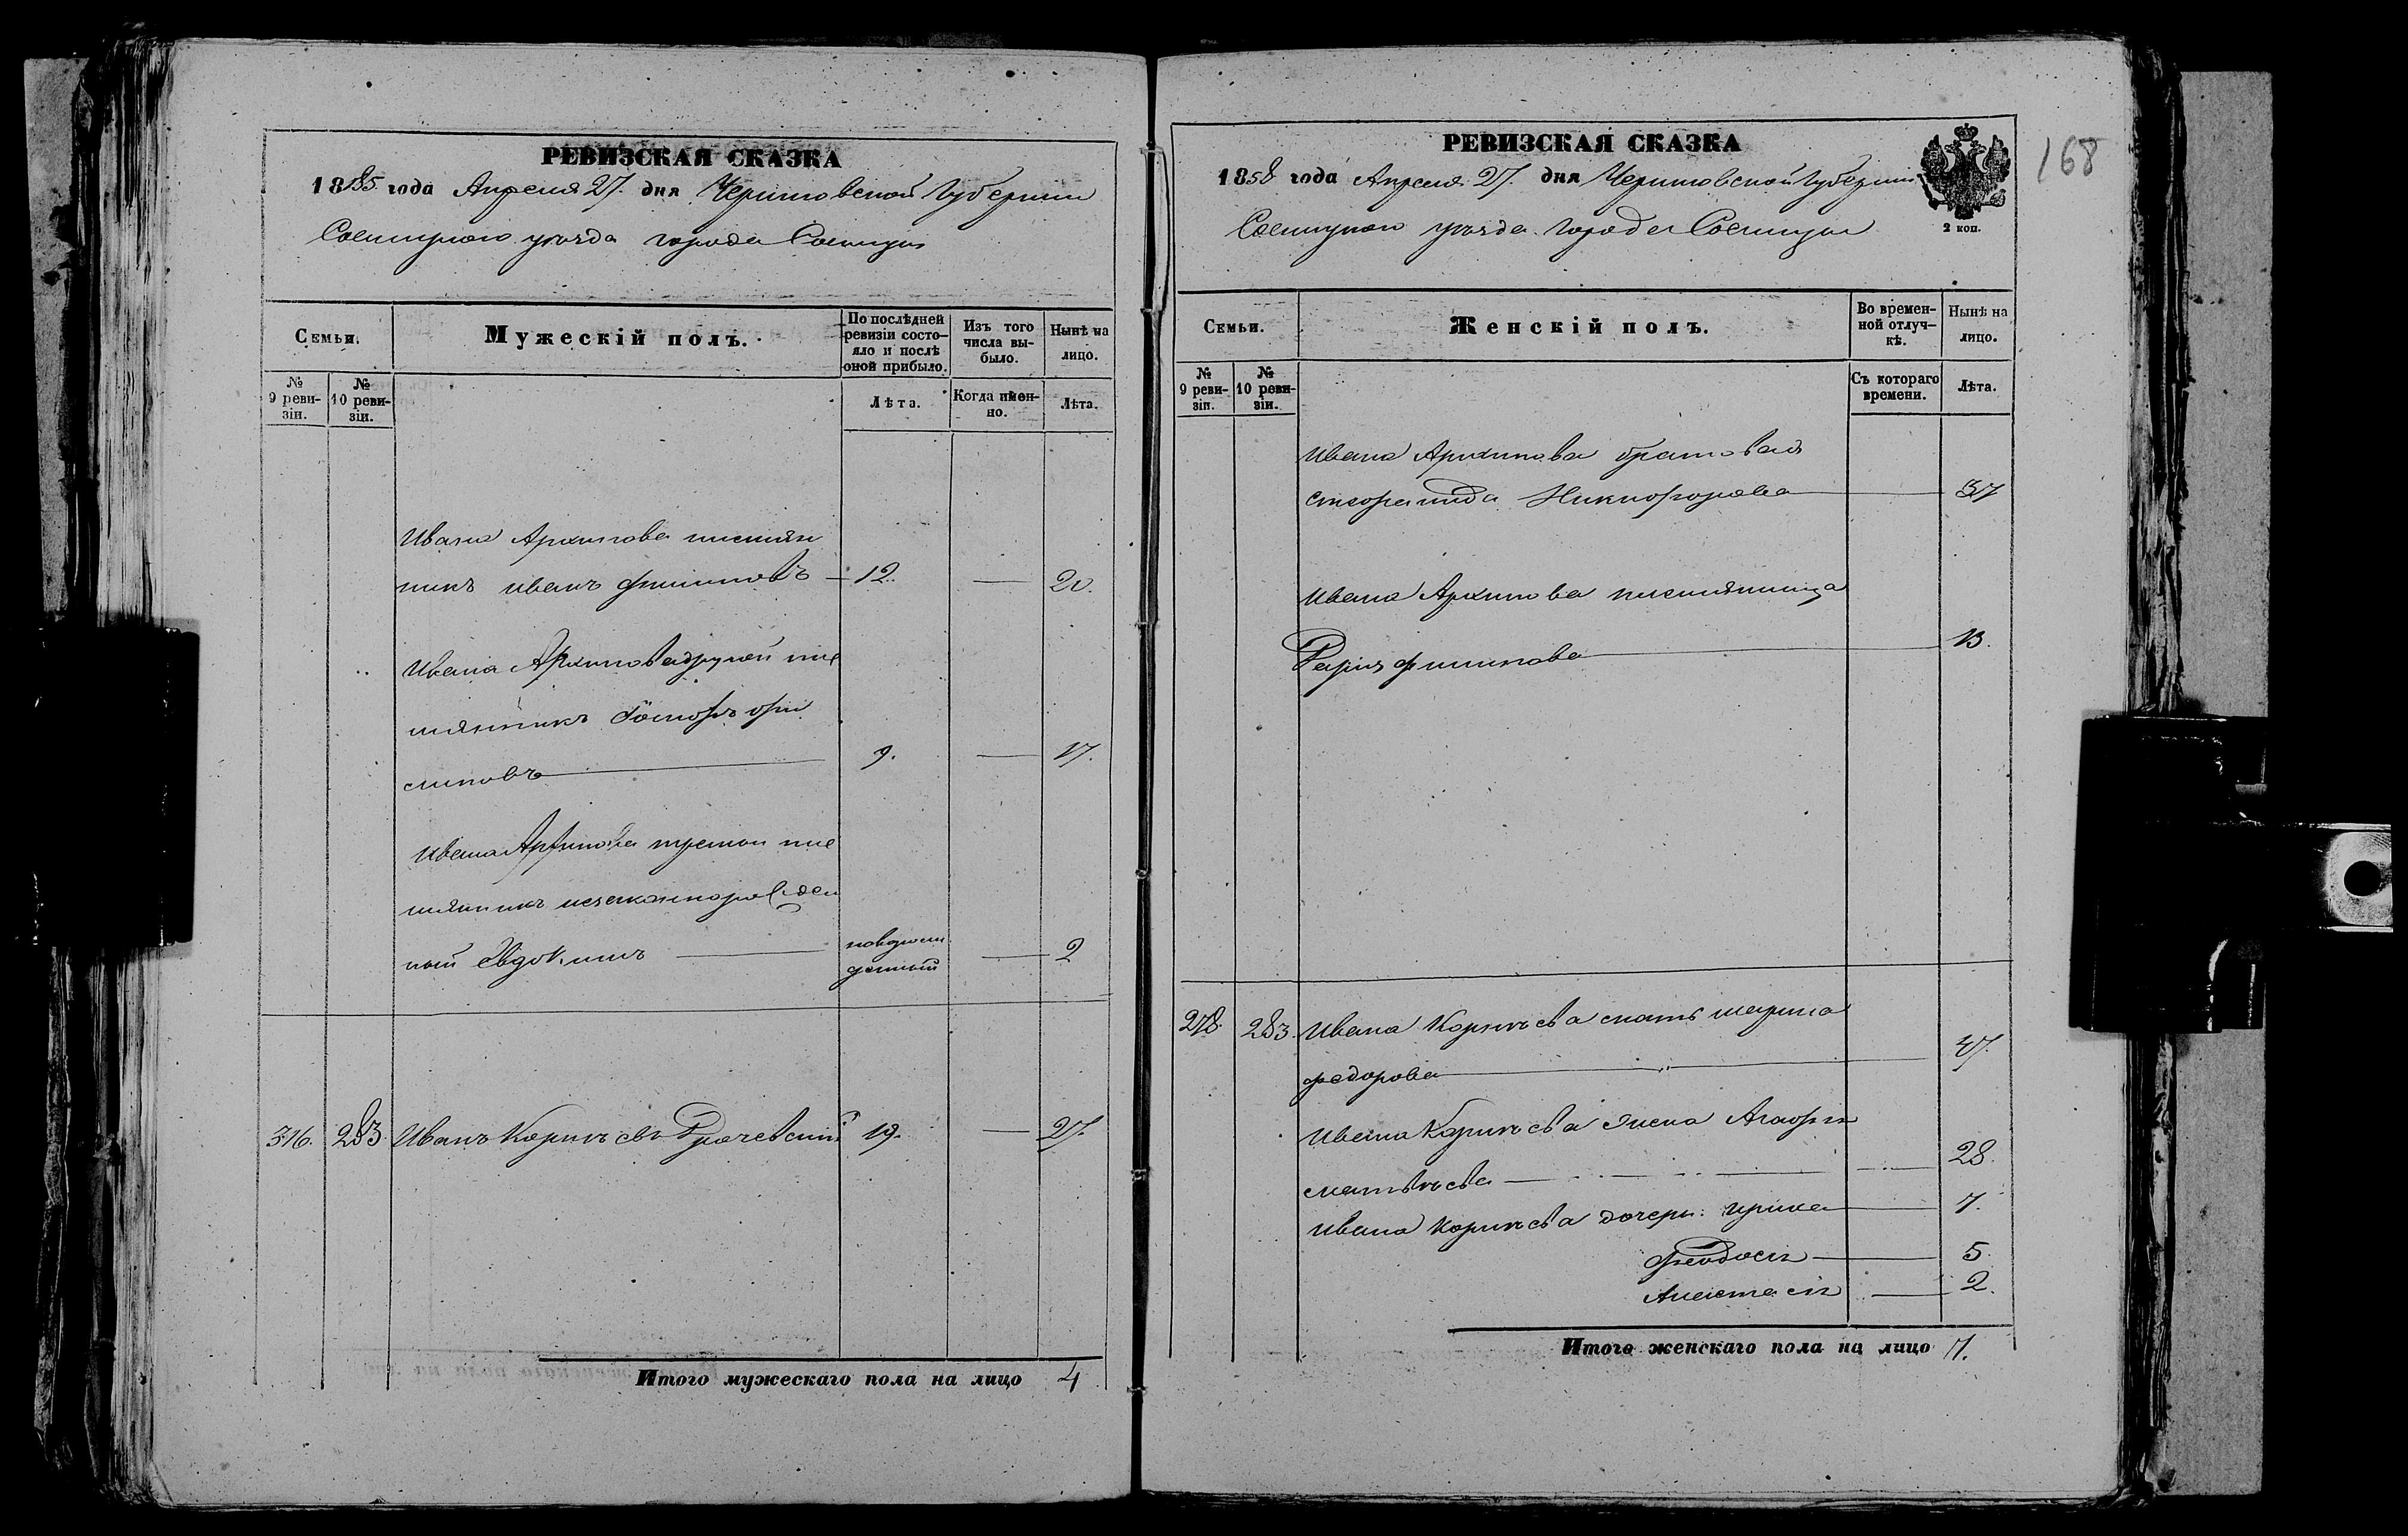 РЕВИЗСКАЯ СКАЗКА
18 года Апреля 27. дня Черниговской Губернии
Сосницкаго уѣзда города Сосницы
Семьи.
Мужескій полъ.
По послѣдней ревизіи состояло и послѣ оной прибыло.
Изъ того числа выбыло.
Нынѣ на лицо.
№ 9 ревизіи.
№ 10 ревизіи.
Лѣта.
Когда именно.
Лѣта.
Ивана Архипова племян
никъ иванъ филиповъ 12. 20.
Ивана Архипова другой пле
мянникъ фи
липовъ 9. 17.
Ивана Архипова третий пле
мянникъ
ный Евдокимъ 2
316. 283 Иванъ Корнѣевъ 19. 27.
Итого мужескаго пола на лицо 4
РЕВИЗСКАЯ СКАЗКА
168
1858 года Апреля 27. дня Черниговской Губернии
Сосницкаго уѣзда города Сосницы
2 коп.
Семьи.
Женскій полъ.
Во временной отлучкѣ.
Нынѣ на лицо.
№ 9 ревизіи.
№ 10 ревизіи.
Съ котораго времени.
Лѣта.
Ивана Архипова братовая
Никифорова 37
Ивана Архипова племянница
филипова 13.
278. 283. Ивана Корнѣева мать марина
федорова 47.
Ивана Корнѣева жена Агафия
матвѣева 28.
Ивана Корнѣева дочери: ирина 7.
феодосия 5.
Анастасия 2.
Итого женскаго пола на лицо 7.